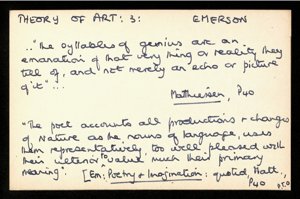 THEORY OF ART: 3: EMERSON
.."The syllables of genius are an
emanation of that very thing or reality they
tell of, and not merely an echo or picture
of it"...
Matthiessen, P40
"The poet accounts all productions + changes
of Nature as the nouns of language, uses
them representatively, too well pleased with
their ulterior to value much their primary
meaning". [Em: Poetry + Imagination: quoted, Matt:,
P40